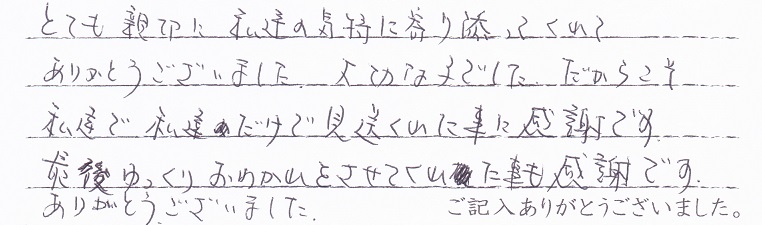 とても親切に私達の気持に寄り添ってくれて
ありがとうございました 大切な子でした だからこそ
私達で私達だけで見送くれた事に感謝です
最後ゆっくりおわかれをさせてくれた事も感謝です.
ありがとうございました. ご記入ありがとうございました。